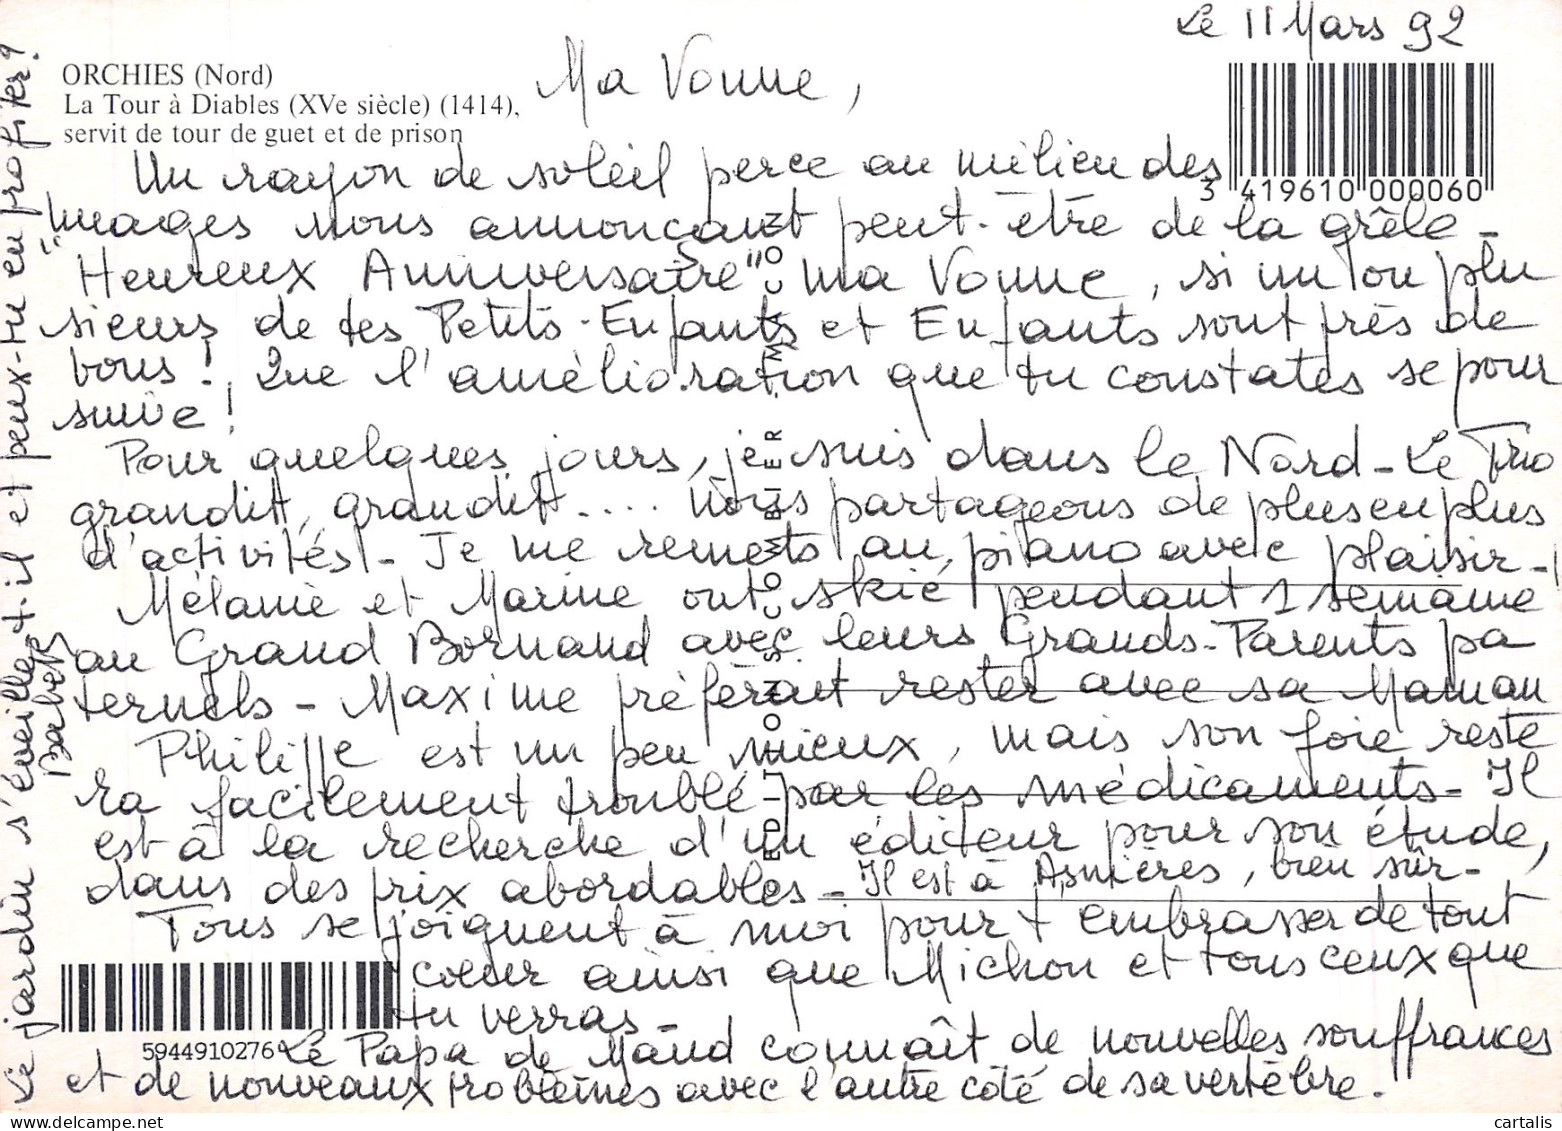 Le 11 Mars 92
ORCHIES (Nord)
La Tour à Diables (XVe siècle) (1414),
servit de tour de guet et de prison
Ma Vonne,
Un rayon de soleil perce au milieu des
nuages nous annonçant peut-être de la grêle -
"Heureux Anniversaire" ma Vonne, si un ou plu
sieurs de tes Petits-Enfants et Enfants sont près de
vous ! Que l'amélioration que tu constates se pour
suive !
Pour quelques jours, je suis dans le Nord - Le Trio
grandit, grandit.... Nous partageons de plus en plus
d'activités - Je me remets au piano avec plaisir - !
Mélanie et Marine ont skié pendant 1 semaine
au Grand Bornand avec leurs Grands-Parents pa
ternels - Maxime préférait rester avec sa Maman
Philippe est un peu mieux, mais son foie reste
ra facilement troublé par les médicaments - Il
est à la recherche d'un éditeur pour son étude,
dans des prix abordables - Il est à Asnières, bien sûr -
Tous se joignent à moi pour t'embrasser de tout
coeur ainsi que Michon et tous ceux que
tu verras -
Le Papa de Maud connaît de nouvelles souffrances
et de nouveaux problèmes avec l'autre côté de sa vertèbre.
Le jardin s'éveille-t-il et peux-tu en profiter ?
Babeth
3 419610 000060
EDITIONS COMBIER MACON
5944910276
www.cartalis.com
cartalis